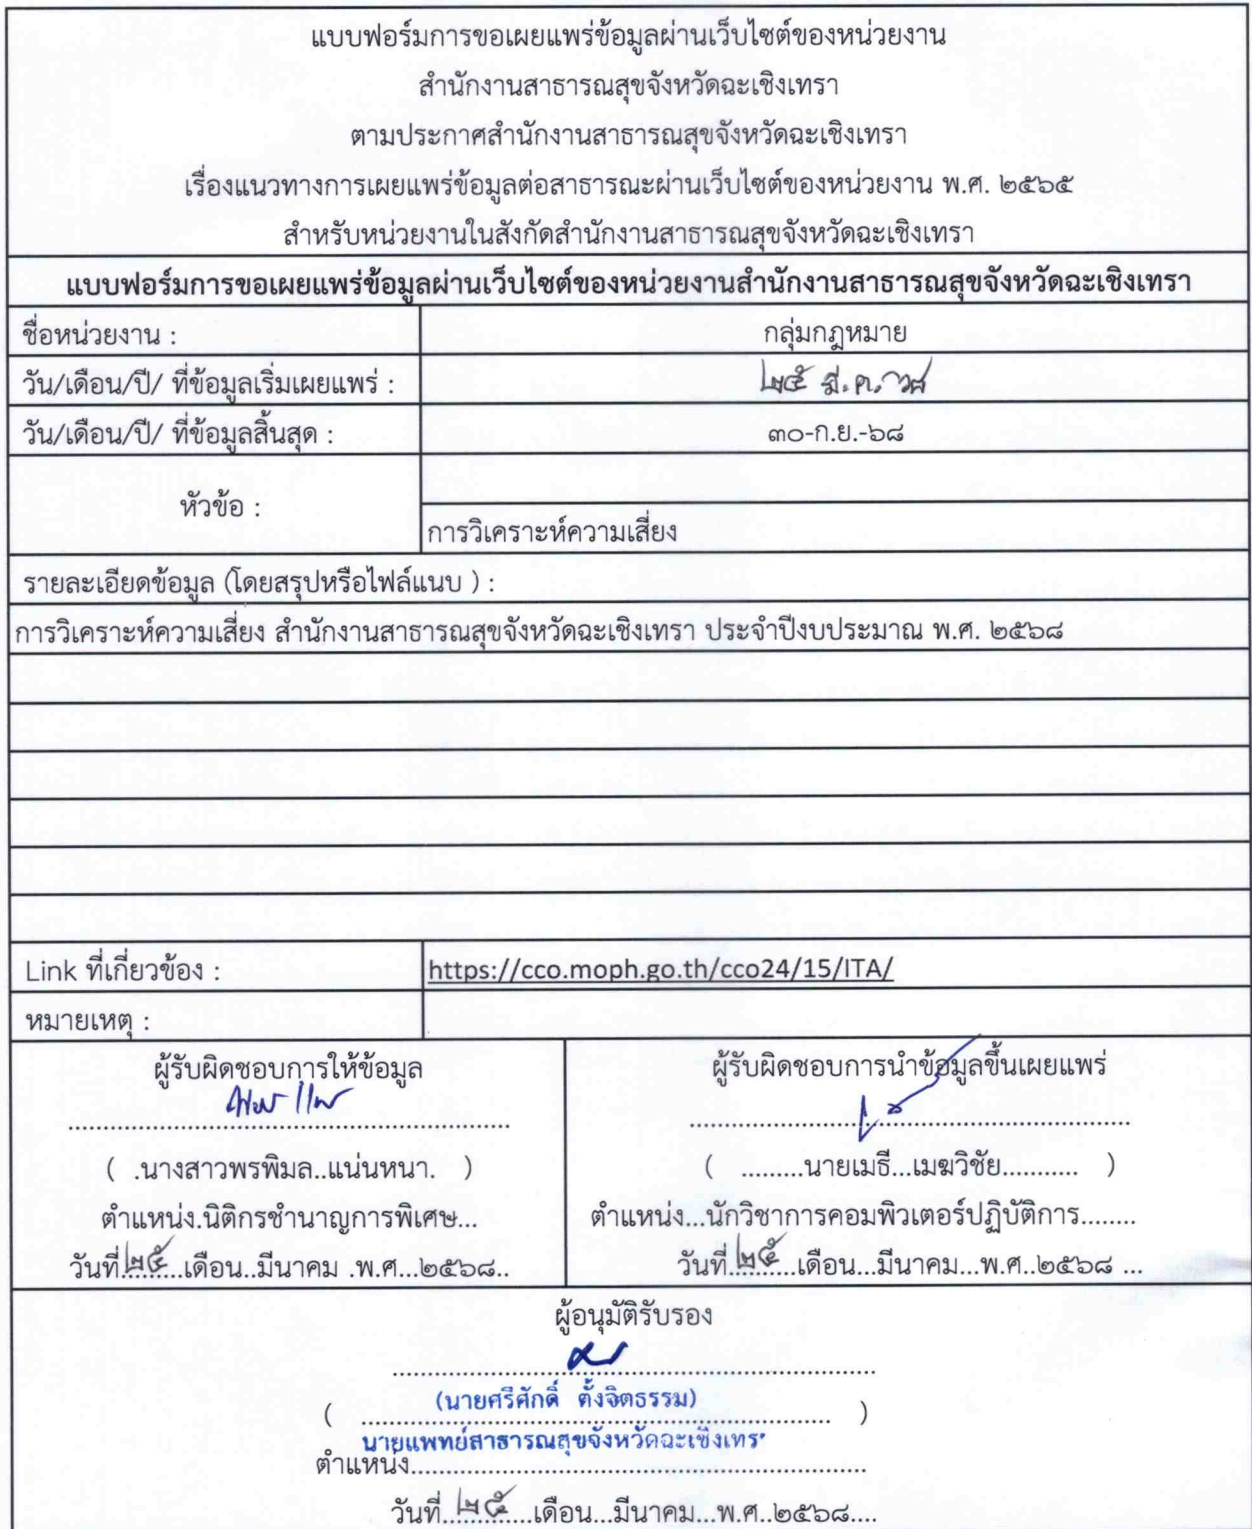 แบบฟอร์มการขอเผยแพร่ข้อมูลผ่านเว็บไซต์ของหน่วยงาน
สำนักงานสาธารณสุขจังหวัดฉะเชิงเทรา
ตามประกาศสำนักงานสาธารณสุขจังหวัดฉะเชิงเทรา
เรื่องแนวทางการเผยแพร่ข้อมูลต่อสาธารณะผ่านเว็บไซต์ของหน่วยงาน พ.ศ. ๒๕๖๕
สำหรับหน่วยงานในสังกัดสำนักงานสาธารณสุขจังหวัดฉะเชิงเทรา
แบบฟอร์มการขอเผยแพร่ข้อมูลผ่านเว็บไซต์ของหน่วยงานสำนักงานสาธารณสุขจังหวัดฉะเชิงเทรา
ชื่อหน่วยงาน : กลุ่มกฎหมาย
วัน/เดือน/ปี/ ที่ข้อมูลเริ่มเผยแพร่ : ๒๕ มี.ค. ๖๘
วัน/เดือน/ปี/ ที่ข้อมูลสิ้นสุด : ๓๐-ก.ย.-๖๘
หัวข้อ :
การวิเคราะห์ความเสี่ยง
รายละเอียดข้อมูล (โดยสรุปหรือไฟล์แนบ ) :
การวิเคราะห์ความเสี่ยง สำนักงานสาธารณสุขจังหวัดฉะเชิงเทรา ประจำปีงบประมาณ พ.ศ. ๒๕๖๘
Link ที่เกี่ยวข้อง : https://cco.moph.go.th/cco24/15/ITA/
หมายเหตุ :
ผู้รับผิดชอบการให้ข้อมูล
( .นางสาวพรพิมล..แน่นหนา. )
ตำแหน่ง.นิติกรชำนาญการพิเศษ...
วันที่.๒๕.เดือน..มีนาคม .พ.ศ...๒๕๖๘..
ผู้รับผิดชอบการนำข้อมูลขึ้นเผยแพร่
( .........นายเมธี...เมฆวิชัย........... )
ตำแหน่ง...นักวิชาการคอมพิวเตอร์ปฏิบัติการ........
วันที่.๒๕.เดือน...มีนาคม...พ.ศ..๒๕๖๘ ...
ผู้อนุมัติรับรอง
(นายศรีศักดิ์ ตั้งจิตธรรม)
นายแพทย์สาธารณสุขจังหวัดฉะเชิงเทรา
ตำแหน่ง
วันที่.๒๕.เดือน...มีนาคม...พ.ศ..๒๕๖๘....